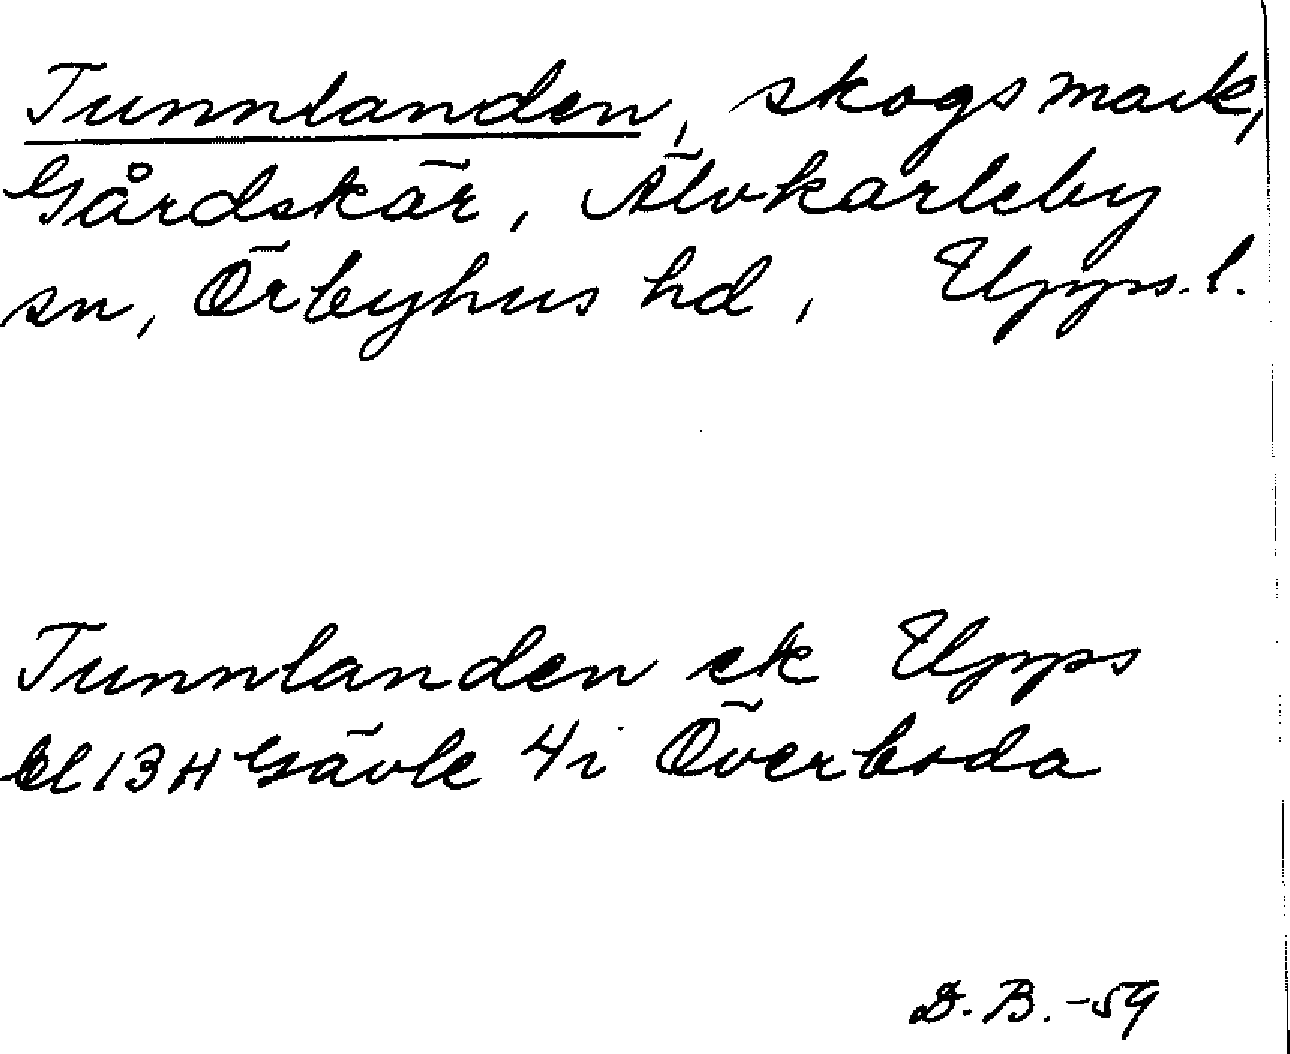 Tunnlanden, skogsmark,
Gårdskär, Älvkarleby
sn, Örbyhus hd, Upps.l.
Tunnlanden ek Upps
bl 13H Gävle 4i Överboda
D.B.-59